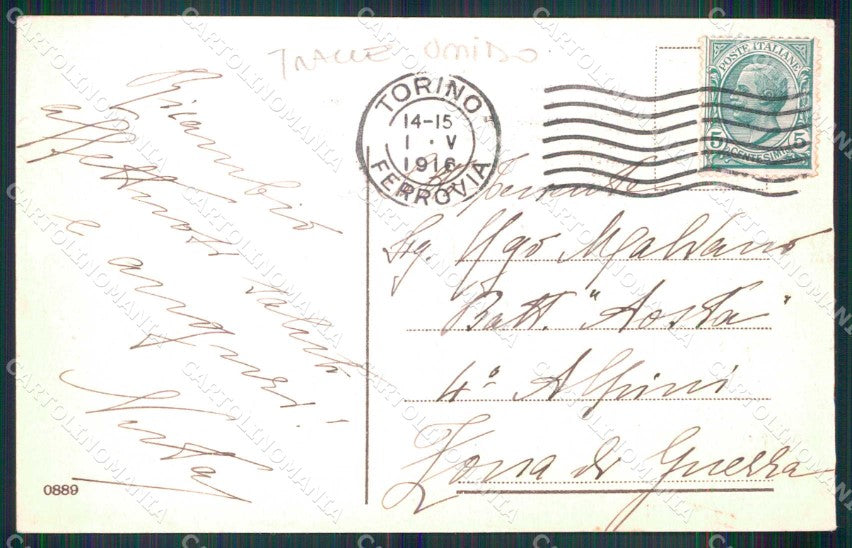 TRACCE UMIDO
TORINO
14-15
1 · V
1916
FERROVIA
POSTE ITALIANE
5 CENTESIMI 5
Ricambio
affettuosi saluti
e auguri!
Tenente
Sig. Ugo Malvano
Batt. "Aosta"
4° Alpini
Zona di Guerra
0889
CARTOLINOMANIA